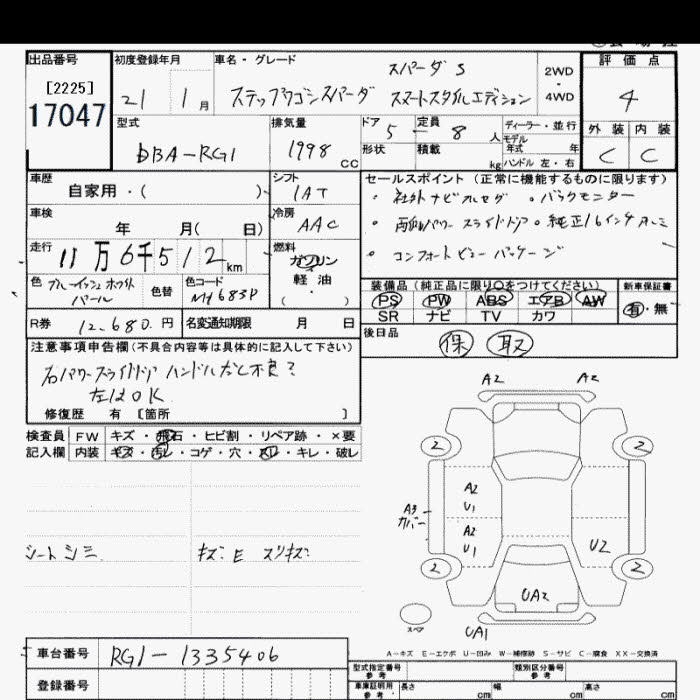 出品番号 初度登録年月 車名・グレード 評価点
[2225]
17047
21 1月
スパーダS
ステップワゴンスパーダ スマートスタイルエディション
2WD
・
4WD
4
型式 排気量 ドア 定員 ディーラー・並行 外装 内装
DBA-RG1 1998 CC 5 8人
モデル年式 年
形状 積載 kg ハンドル 左・右
C C
車歴 シフト セールスポイント (正常に機能するものに限ります)
自家用・( ) IAT
・社外ナビフルセグ ・バックモニター
車検 冷房
年 月( 日) AAC
・両側パワースライドドア ・純正16インチアルミ
走行 燃料
11万6千512km ガソリン
・コンフォートビューパッケージ
軽油
・( )
色 ブルーイッシュホワイトパール 色替 色コード NH683P
装備品 (純正品に限り○をつけてください) 新車保証書
PS PW ABS エアB AW 有・無
SR ナビ TV カワ
R券 12,680.円 名変通知期限 月 日
後日品 保 取
注意事項申告欄 (不具合内容等は具体的に記入して下さい)
右パワースライドドア ハンドルだと不良?
左はOK
修復歴 有 [箇所 ]
検査員 FW キズ・飛石・ヒビ割・リペア跡・×要
記入欄 内装 キズ・汚レ・コゲ・穴・スレ・キレ・破レ
シートシミ キズ E スリキズ
A2 A2
2 2
A2
U1
A3
カバー
A2
U1
U2
2 2
UA2
スペア
UA1
A-キズ E-エクボ U-凹み W-補修跡 S-サビ C-腐食 XX-交換済
車台番号 RG1-1335406
登録番号
型式指定番号 参考 類別区分番号 参考
車庫証明用 参考 長さ cm 幅 cm 高さ cm